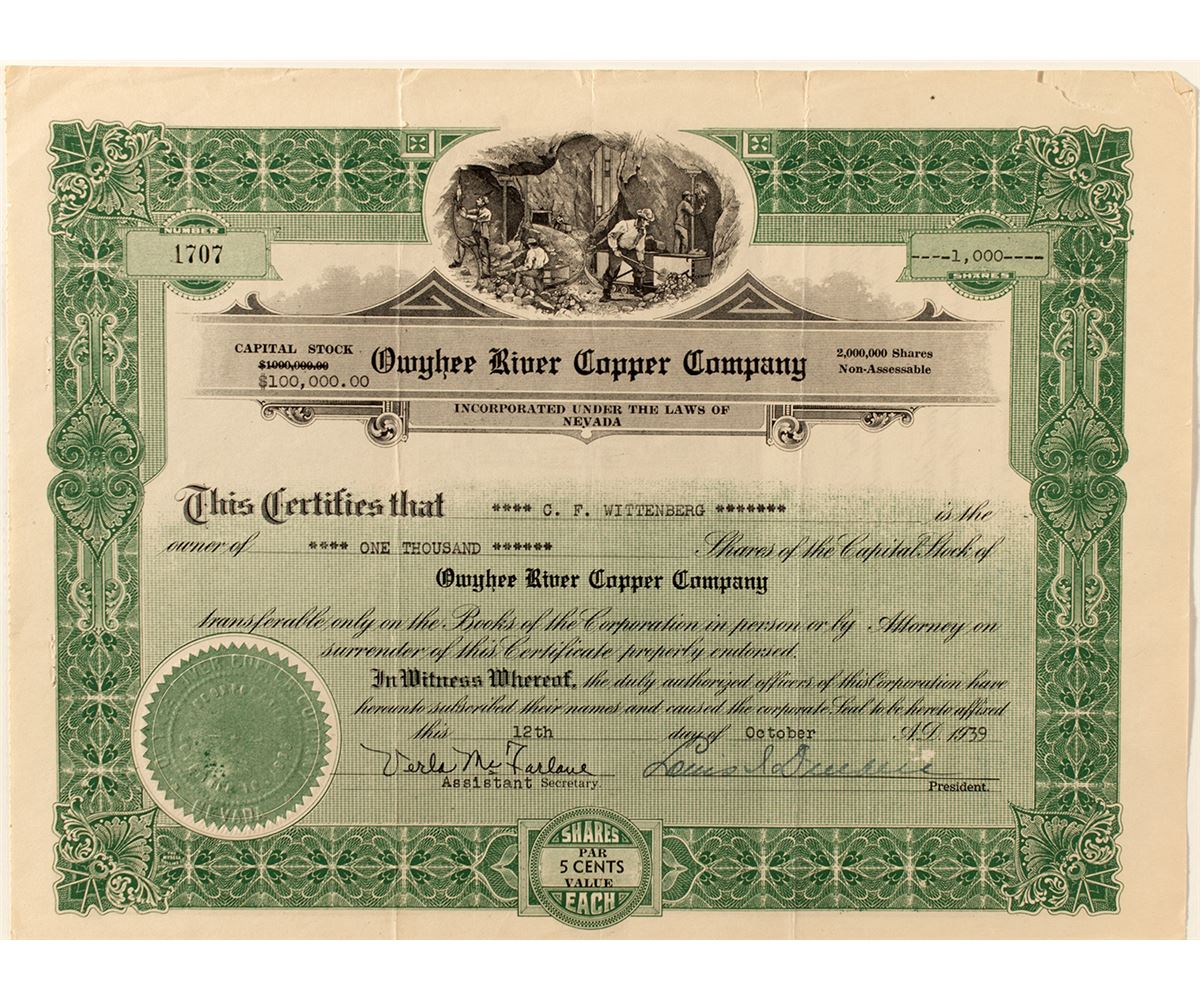 NUMBER
1707
----1,000----
SHARES
CAPITAL STOCK
$1000,000.00
$100,000.00
Owyhee River Copper Company
2,000,000 Shares
Non-Assessable
INCORPORATED UNDER THE LAWS OF
NEVADA
This Certifies that **** C. F. WITTENBERG ******* is the
owner of **** ONE THOUSAND ****** Shares of the Capital Stock of
Owyhee River Copper Company
transferable only on the Books of the Corporation in person or by Attorney on
surrender of this Certificate properly endorsed.
In Witness Whereof, the duly authorized officers of this Corporation have
hereunto subscribed their names and caused the corporate Seal to be hereto affixed
this 12th day of October A.D. 1939
Verla McFarlane
Assistant Secretary.
President.
NEVADA
SHARES
PAR
5 CENTS
VALUE
EACH